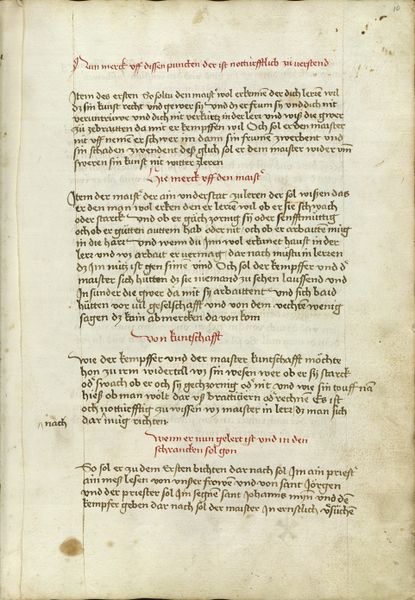 10
Nun merck uff dissen puncten der ist notürfftlich zu verstend
Item des ersten So soltu den maist͛ wol erkenne der dich leren wil
dz sin kunst recht und gewer sÿ und dz er frum sÿ und dich nit
veruntruwe und dich nit verkürtz in der ler und wiß die gwer
zu zebrautten da mit er kempffen wil Och sol er den maister
nit uff neme er schwer im dann sin frumen zwerbent und
sin schaden zwendent deß glich sol er dem maister wider um̄
sweren sin kunst nit witter zleren
Hie merck uff den maist͛
Item der maist͛ der ain understat zu leren der sol wissen das
er den man wol erken den er leren wil ob er sie schwach
oder starck und ob er gäch zornig sÿ oder senfftmüttig
och ob er gütten auttem hab oder nit och ob er arbautte müg
in die härt und wenn du Inn wol erkanet haust in der
lerr und wz arbaut er vermag dar nach mustu in lerren
dz im nütz ist gen sine vind Och sol der kempffer und d͛
maister sich hütten dz sie niemand zu sehen laussend und
In sunder die gwer da mit sÿ arbaittent und sich baid
hütten vor vil geselschafft und von dem vechten wenig
sagen dz kain abmercken da von kom
Von kuntschafft
Wie der kempffer und der maister kuntschafft möchte
hon zu irem widertail wz sin wesen wer ob er sÿ starck
od͛ swach ob er och sÿ gechzornig od͛ nit und wie sin touff nā
hieß ob man wölt dar uß brattieren od͛ rechne Es ist
och notürfftig zu wissen wz maister in lerr dz man sich
nach
dar müg richten
Wenn er nun gelert ist und in den
schrancken sol gon
So sol er zu dem Ersten bichten dar nach sol Im ain priest͛
ain mess lesen von unßer frowen und von sant Jörgen
und der priester sol Im segnē sant Johanns mÿn und dē
kempfer geben dar nach sol der maister in ernstlich v͛süchen